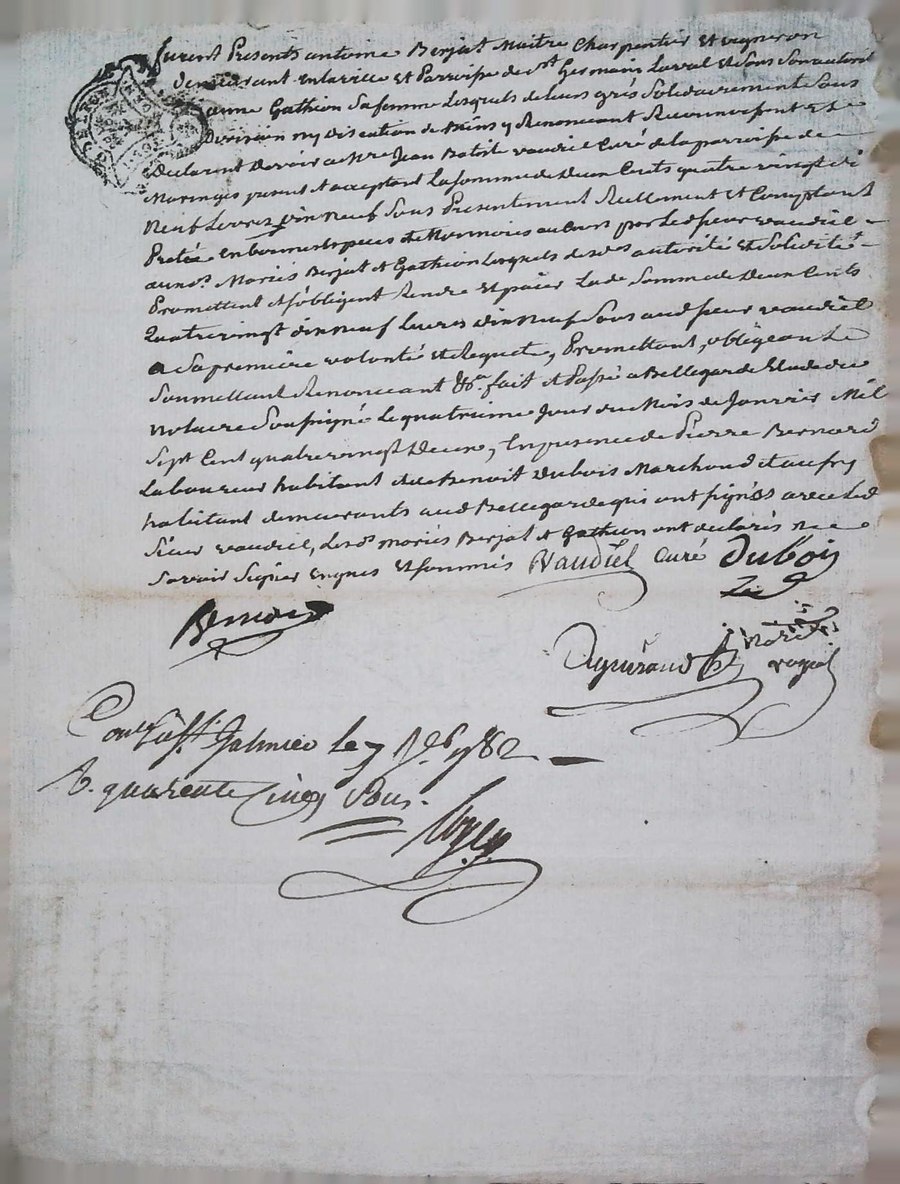 furent Presents antoine Berjat Maitre Charpentier Et vigneron
demeurant enlaville et Parroisse de St Germain Laval et Sous Son autorité
anne Gathion Sa femme Lesquels de leurs grés Solidairement Sous
Division ny Discution de biens y Renoncant Reconnoissent Et
Declarent Devoir a Mre Jean Batiste vaudiel Curé de la parroisse de
Maringes present et acceptant La Somme de Deux Cents quatre vingt di
Neuf Livres dix neuf Sous Presentement Reellement et Comptant
Pretée en bonnes Especes de Monnoies au Cours par Led sieur vaudiel
auxd. Mariés Berjat et Gathion Lesquels desds autorité et Solidité
Promettent et sobligent Rendre et païer Lade Somme de Deux Cents
Quatre vingt dix neuf Livres dix neuf Sous aud sieur vaudiel
a Sa premiere volonté et Requete, Promettant, obligeant
Soumettant Renonceant &c. fait et Passé a Bellegarde Etude du
notaire Soussigné Le quatrieme Jour du Mois de Janvier Mil
Sept Cent quatre vingt Deux, En presence de Pierre Bernard
Laboureur habitant et de Benoit Dubois Marchand et aussy
habitant demeurants aud Bellegarde qui ont signés avec Led
Sieur vaudiel, Les ds mariés Berjat et Gathion ont declarés ne
Savoir Signer enquis Et Sommés Vaudiel Curé Dubois
Bernard
royal
Galmier le 7 1782
quarente Cinq Sous.